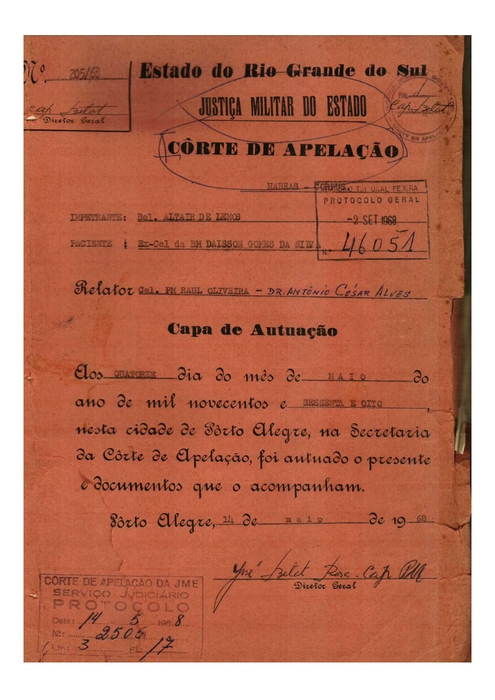 Nº 205/68
Estado do Rio Grande do Sul
JUSTIÇA MILITAR DO ESTADO
Diretor Geral
CÔRTE DE APELAÇÃO
HABEAS - CORPUS
PROTOCOLO GERAL
-2 SET 1968
N. 46051
IMPETRANTE: Bel. ALTAIR DE LEMOS
PACIENTE : Ex-Cel da BM DAISSON GOMES DA SILVA
Relator Cel. PM RAUL OLIVEIRA - DR. ANTÔNIO CÉSAR ALVES
Capa de Autuação
Aos QUATORZE dia do mês de MAIO do
ano de mil novecentos e SESSENTA E OITO,
nesta cidade de Pôrto Alegre, na Secretaria
da Côrte de Apelação, foi autuado o presente
e documentos que o acompanham.
Pôrto Alegre, 14 de maio de 1968
Diretor Geral
CÔRTE DE APELAÇÃO DA JME
SERVIÇO JUDICIÁRIO
PROTOCOLO
Data: 14 5 1968
Nº: 2505
Liv: 3 Fl. 17